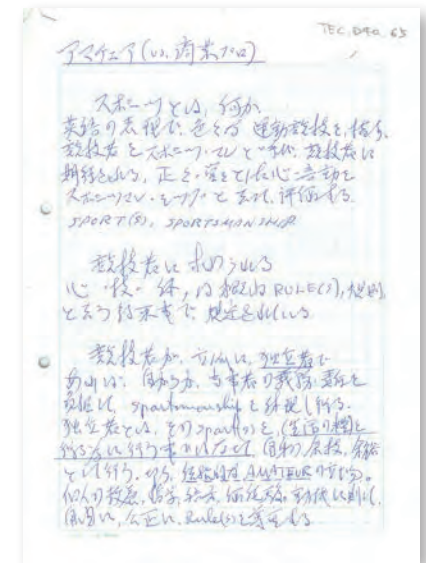 TEC.D90.65
アマチュア(vs. 商業プロ)
スポーツとは、何か
英語の表現で、色々な 運動競技を、指す。
競技者をスポーツ・マンと呼び、競技者に
期待される、正々堂々とした心・言動を
スポーツマン・シップと云って、評価する
SPORT(S), SPORTSMANSHIP
競技者に求められる
心・技・体、の RULE(S), 規則
と云う約束事で、規定されている
競技者が、立派に、独立者で
あれば、自から、当事者の義務・責任を
負担し、sportsmanship を
独立者とは、そのsport(s)を、(生活の糧を
得る為に行う事ではなくて、自分の余技、余裕
として行う。AMATEURの
個人の教養、哲学、
自由に、公正に、Rule(s)を尊重する